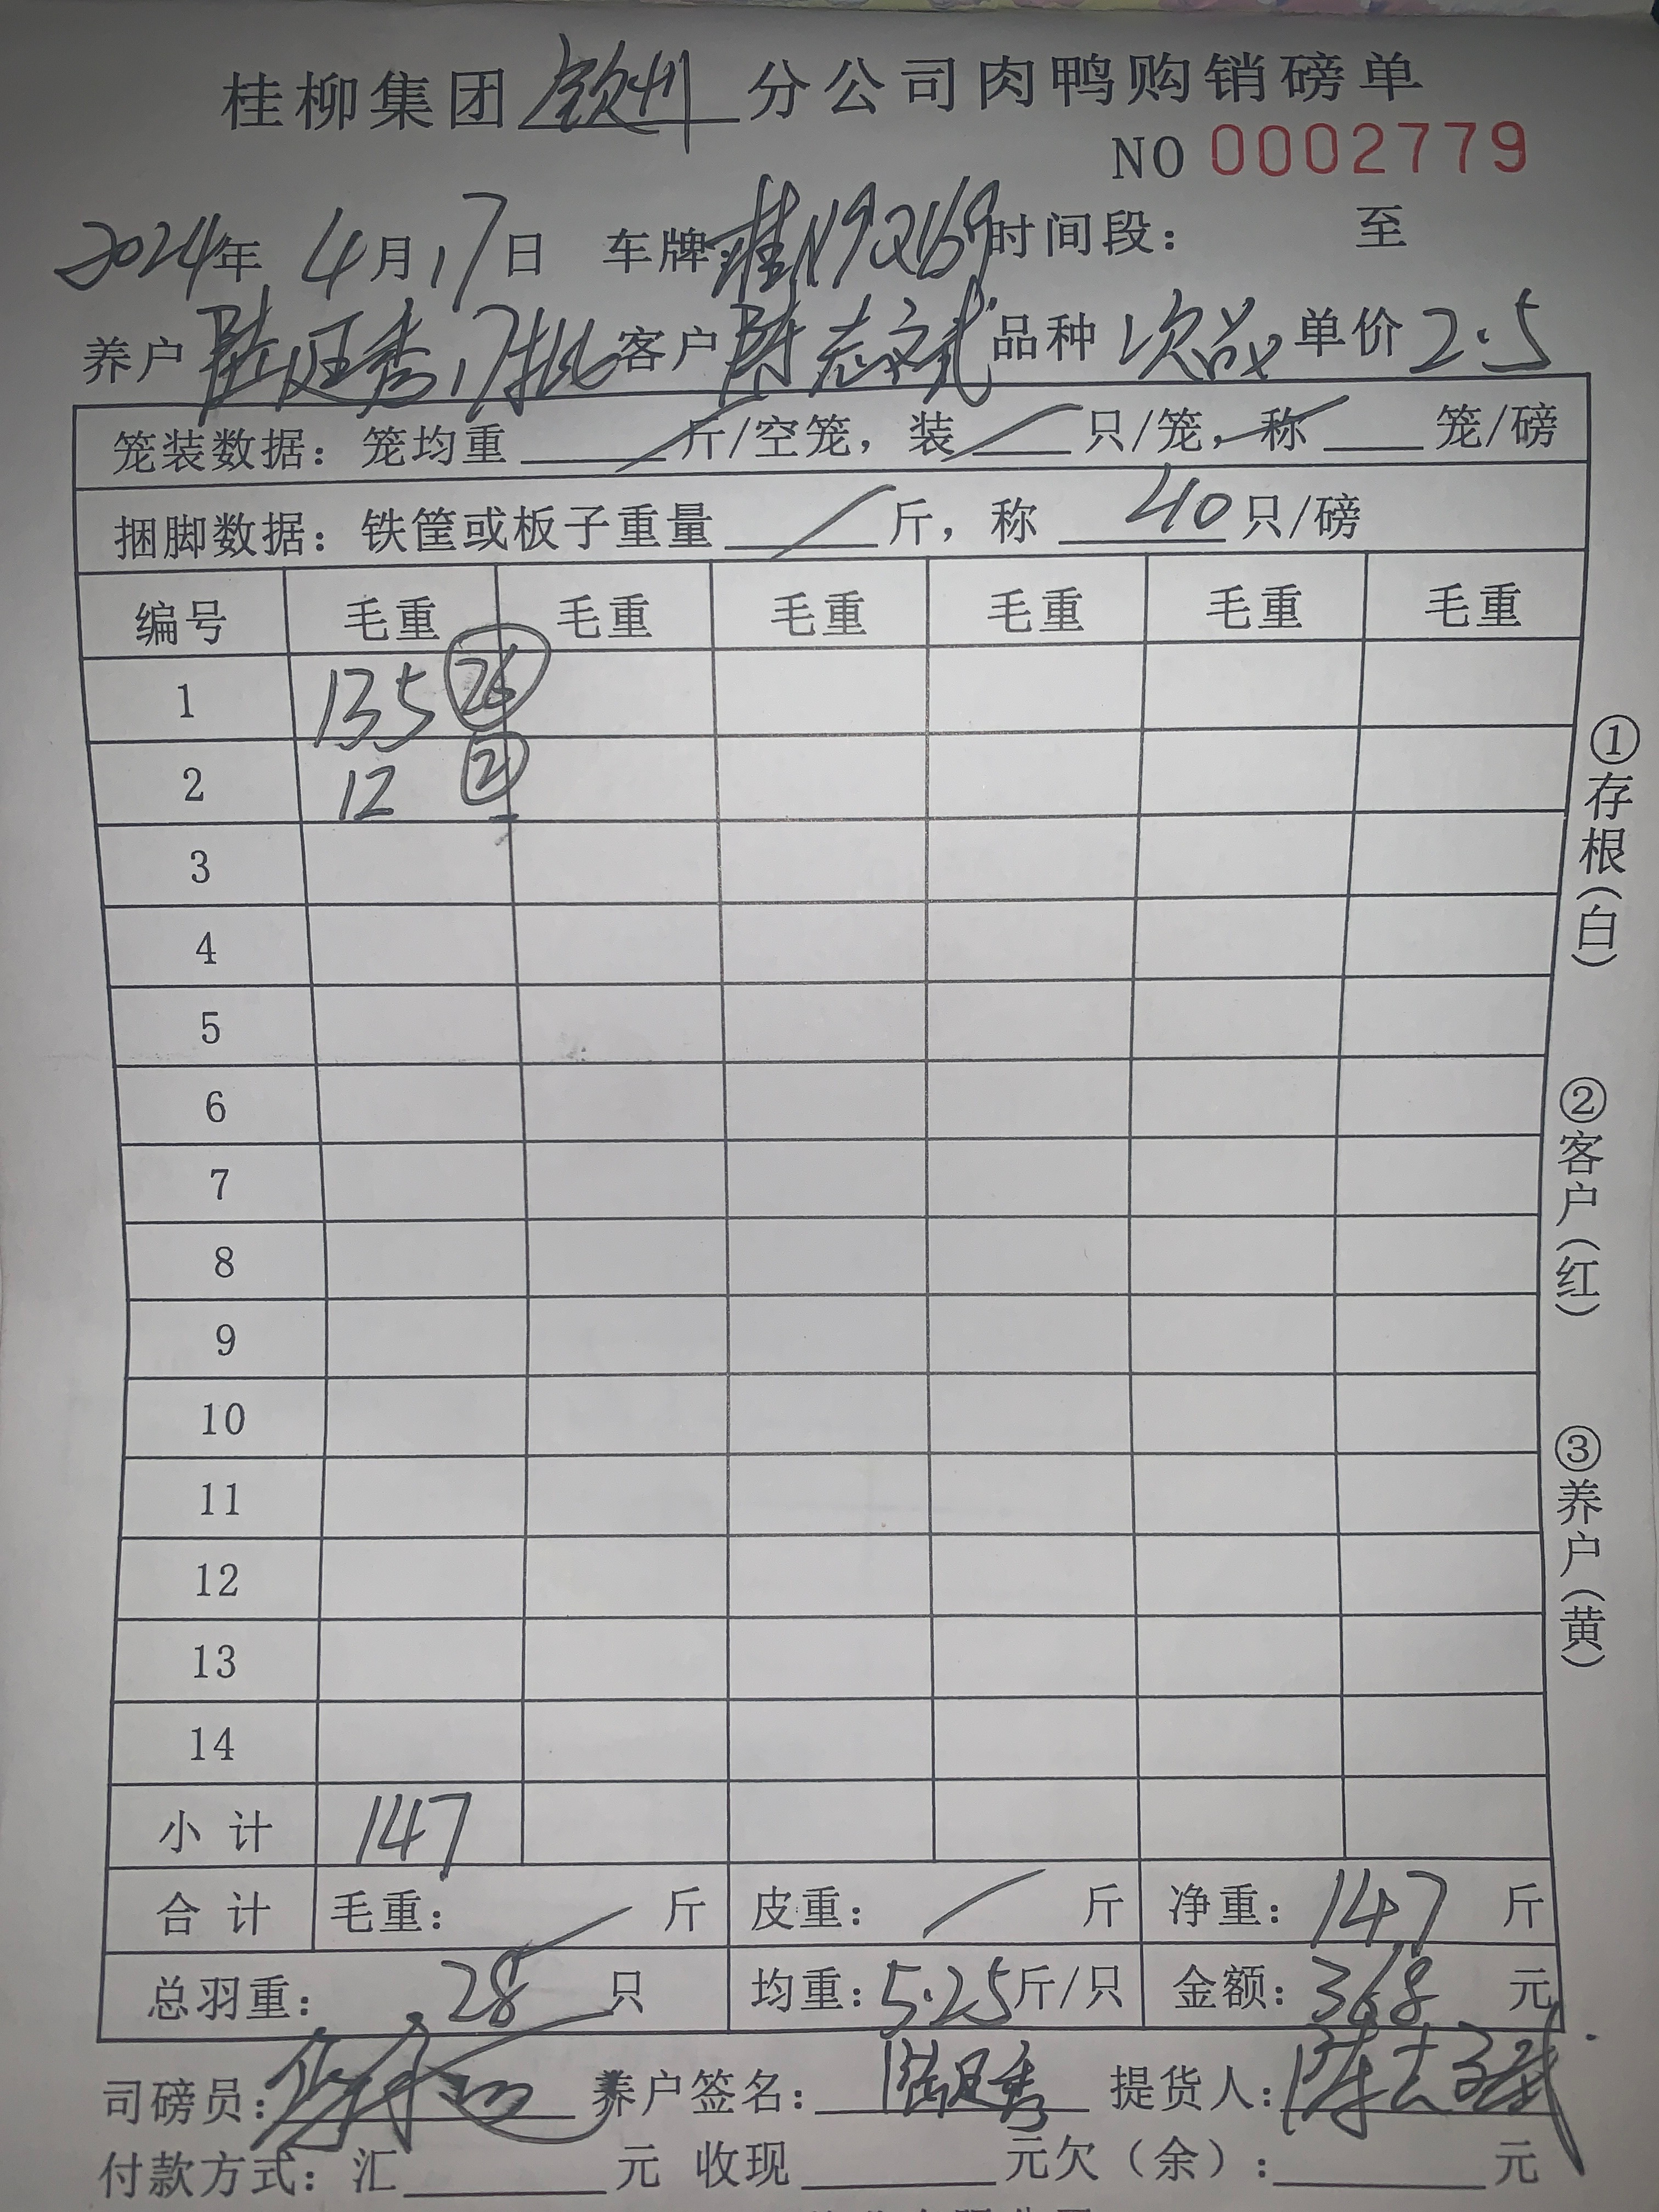 桂柳集团 钦州 分公司肉鸭购销磅单
NO 0002779
2024年 4月17日 车牌:桂N9Q169时间段: 至
养户 陆旺秀17批 客户 陈志斌 品种 次品 单价 2.5
笼装数据: 笼均重 斤/空笼, 装 只/笼, 称 笼/磅
捆脚数据: 铁筐或板子重量 斤, 称 40 只/磅
编号 毛重 毛重 毛重 毛重 毛重 毛重
1 135 26
2 12 2
3
4
5
6
7
8
9
10
11
12
13
14
小计 147
合计 毛重: 斤 皮重: 斤 净重: 147 斤
总羽重: 28 只 均重: 5.25斤/只 金额: 368 元
司磅员: 养户签名: 陆旺秀 提货人: 陈志斌
付款方式: 汇 元 收现 元欠(余): 元
①存根(白)
②客户(红)
③养户(黄)